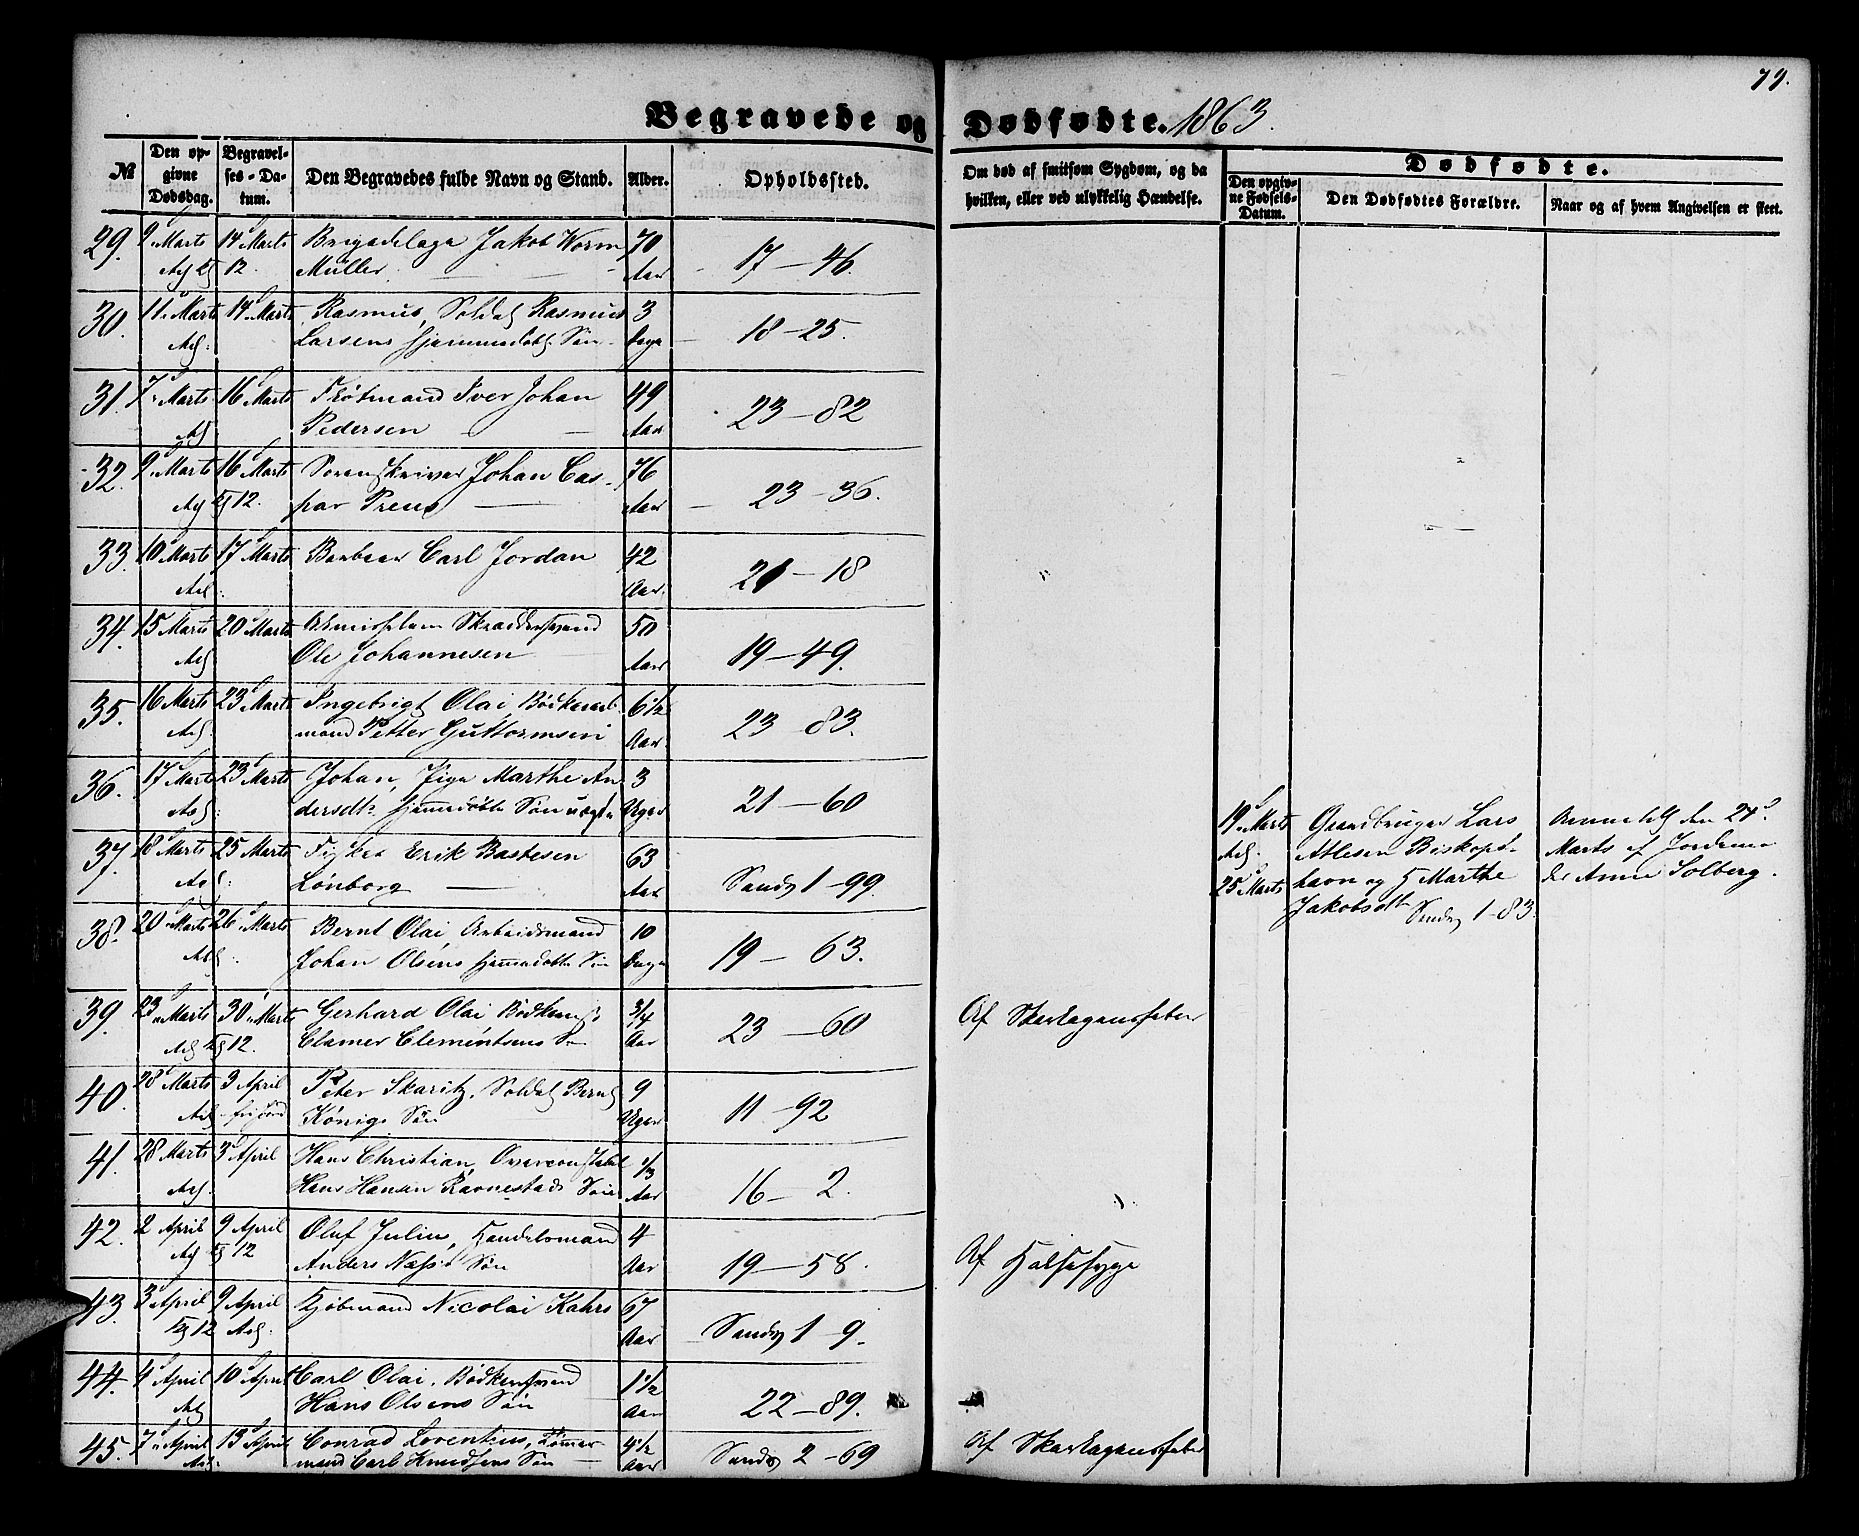 79.
Begravede og Dødfødte. 1863.
№
Den op-
givne
Dødsdag.
Begravel-
ses-Da-
tum.
Den Begravedes fulde Navn og Stand.
Alder.
Opholdssted.
Om død af smitsom Sygdom, og da
hvilken, eller ved ulykkelig Hændelse.
Dødfødte.
Den opgiv-
ne Fødsels-
Datum.
Den Dødfødtes Forældre.
Naar og af hvem Angivelsen er skeet.
29. 9 Marts 14 Marts Brigadelæge Jakob Worm 70
12. Müller Aar 17-46.
30. 11 Marts 14 Marts Rasmus, Soldat Rasmus 3
Larsens hjemmedøbt Søn Dage 18-25.
31. 7 Marts 16 Marts Iver Johan 49
Pedersen Aar 23-82
32. 9 Marts 16 Marts Sorenskriver Johan Cas- 76
12. par Preus Aar 23-36.
33. 10 Marts 17 Marts Carl Jordan 42
Aar 21-18
34. 15 Marts 20 Marts Skrædersvend 50
Ole Johannesen Aar 19-49.
35. 16 Marts 23 Marts Ingebrigt Olai, 6 1/2
Petter Guttormsen Aar 23-83.
36. 17 Marts 23 Marts Johan, Pige Marthe An 3
dersdtr hjemmedøbte Søn uægte Uger 21-60
37. 18 Marts 25 Marts Fisker Erik Bastesen 63
Lønborg Aar Sandv 1-99.
38. 20 Marts 26 Marts Bernt Olai, Arbeidsmand 10
Johan Olsens hjemmedøbte Søn Dage 19-63.
39. 23 Marts 30 Marts Gerhard Olai 3/4
12. Clamer Clementsens Søn Aar 23-60
Af Skarlagensfeber
40. 28 Marts 3 April Peter Skaritz, Soldat Bernt 9
fri Jord Königs Søn Uger 11-92
41. 28 Marts 3 April Hans Christian, Overconstabel 1/3
Hans Hansen Ravnestads Søn Aar 16-2.
42. 2 April 9 April Oluf Julius, Handelsmand 4
12 Anders Næss's Søn Aar 19-58.
Af Halssyge
43. 3 April 9 April Kjøbmand Nicolai Kahrs 67
12 Aar Sandv 1-9.
44. 4 April 10 April Carl Olai, Bødkersvend 1 1/2
Hans Olsens Søn Aar 22-89.
45. 7 April 13 April Conrad Loventius, Tømmer 4 1/2
mand Carl Knudsens Søn Aar Sandv 2-69
Af Skarlagensfeber
19 Marts Grandbruger Lars Anmeldt den 24
Atlesen Biskops- Marts af Jordemo
25 Marts havn og H Marthe der Anne Solberg.
Jakobsdtr Sandv 1-83.